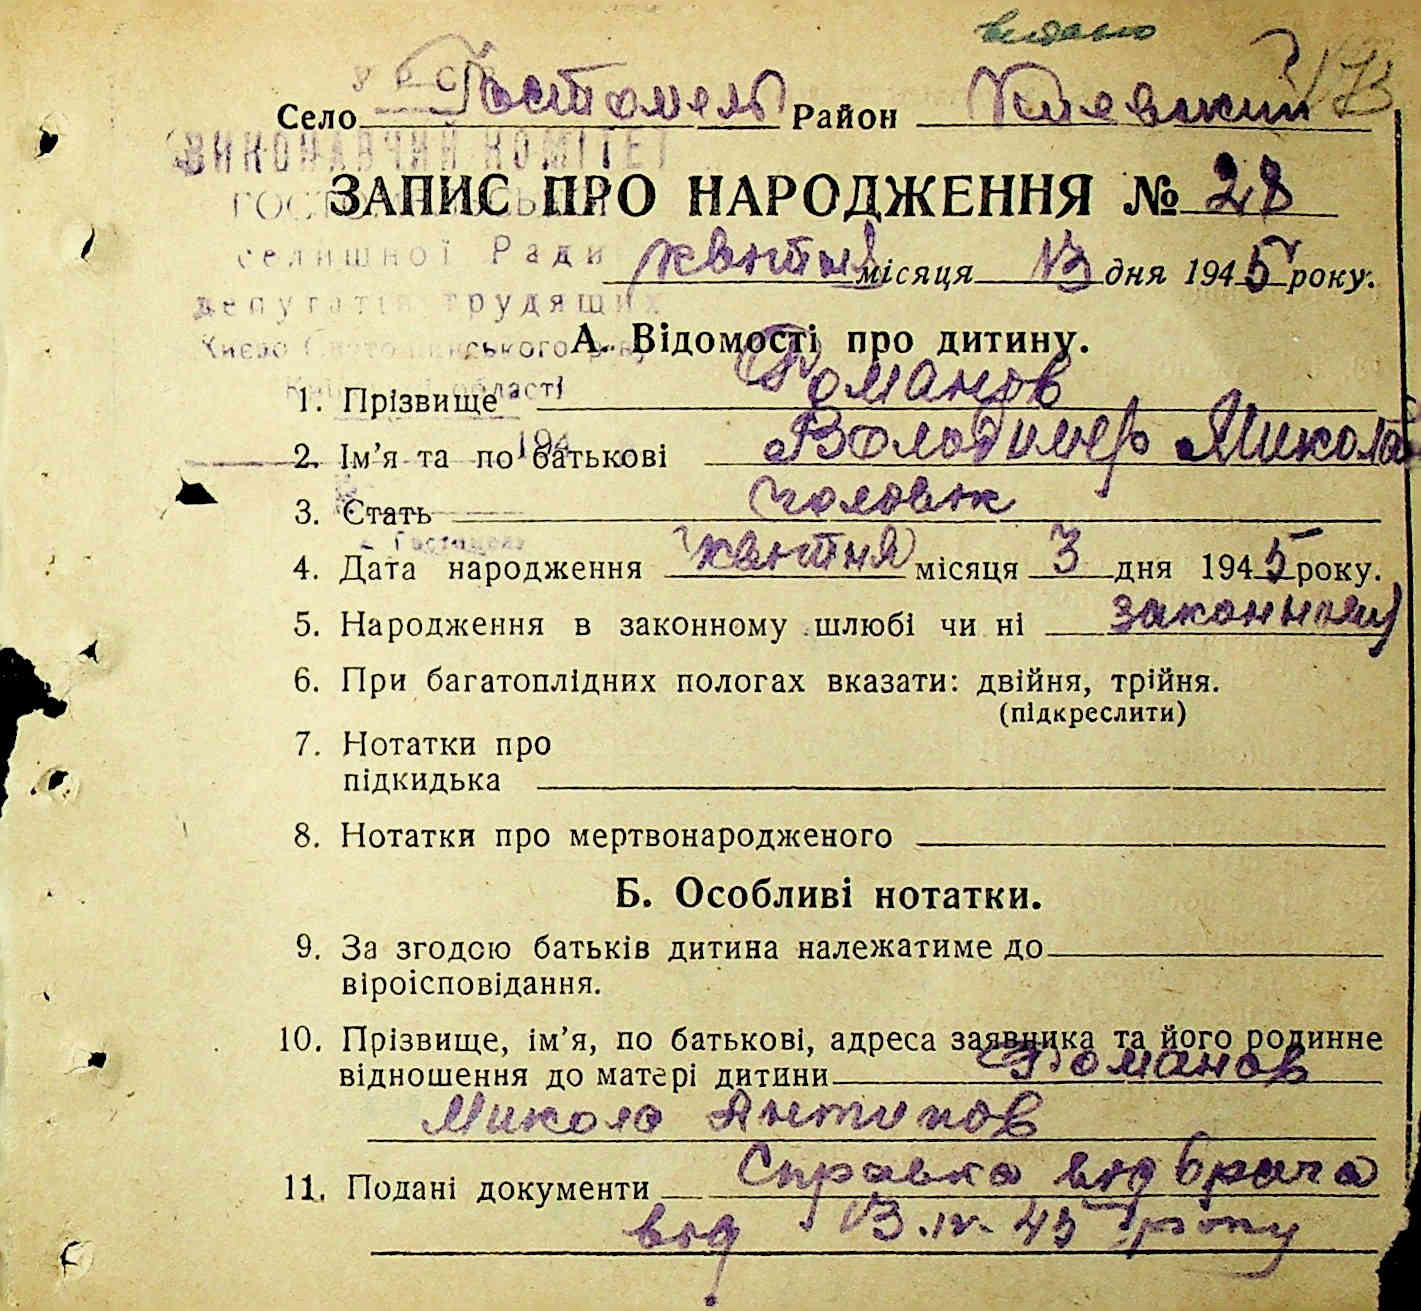 видано
3/73
У Р С Р
Село Гостомель Район Киевский
ВИКОНАВЧИЙ КОМІТЕТ
ЗАПИС ПРО НАРОДЖЕННЯ № 28
селишної Ради
квітня місяця 13 дня 1945 року.
депутатів трудящих
А. Відомості про дитину.
області
1. Прізвище Романов
194
2. Ім'я та по батькові Володимер Микола
3. Стать чоловік
4. Дата народження квітня місяця 3 дня 1945 року.
5. Народження в законному шлюбі чи ні законному
6. При багатоплідних пологах вказати: двійня, трійня.
(підкреслити)
7. Нотатки про
підкидька
8. Нотатки про мертвонародженого
Б. Особливі нотатки.
9. За згодою батьків дитина належатиме до
віроісповідання.
10. Прізвище, ім'я, по батькові, адреса заявника та його родинне
відношення до матері дитини Романов
Микола Антипов
11. Подані документи Справка від врача
від 13.IV-45 року